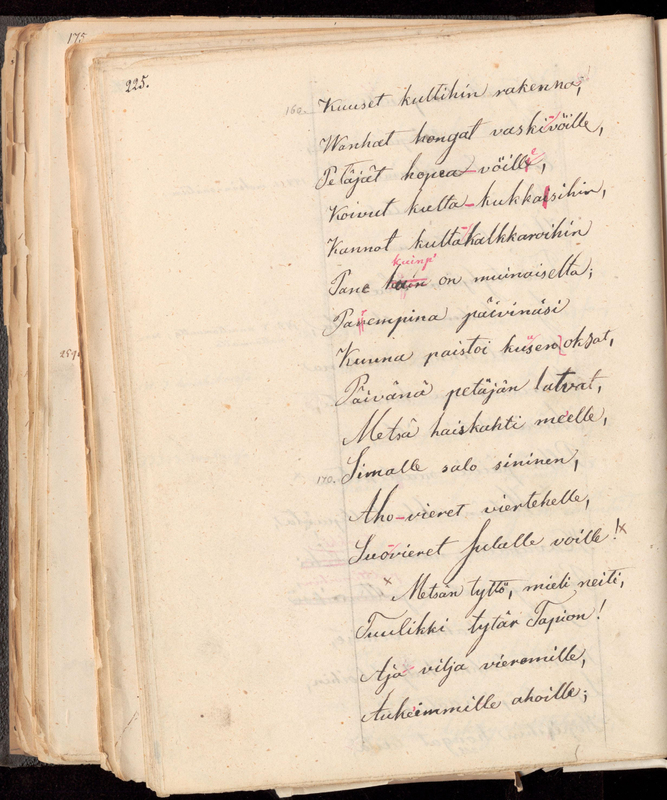 175
225.
160. Kuuset kultihin rakenna,
Wanhat hongat vaskivöille,
Petäjät hopea-vöille,
Koivut kulta-kukkasihin,
Kannot kultakalkkaroihin
kuinp'
Pane kuin on muinaiselta;
Parempina päivinäsi
Kuuna paistoi kuusen oksat,
Päivänä petäjän latvat,
Metsä haiskahti meelle,
170. Simalle salo sininen,
Aho-vieret viertehelle,
Suovieret sulalle voille!x
x Metsän tyttö, mieli neiti,
Tuulikki tytär Tapion!
Aja vilja vieremille,
Aukeimmille ahoille;